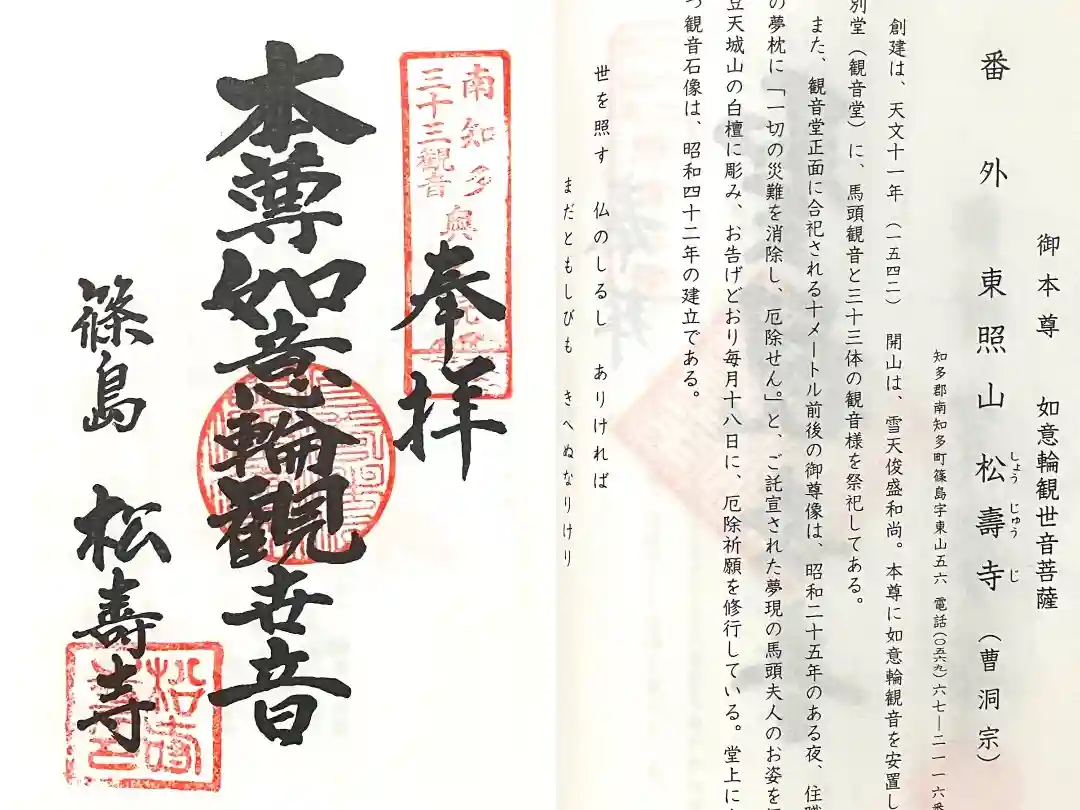 御本尊 如意輪観世音菩薩
番外 東照山松壽寺（曹洞宗）
しょう じゅう じ
知多郡南知多町篠島字東山五六 電話(〇五六九)六七―二一一六番
創建は、天文十一年（一五四二） 開山は、雪天俊盛和尚。本尊に如意輪観音を安置し
別堂（観音堂）に、馬頭観音と三十三体の観音様を祭祀してある。
また、観音堂正面に合祀される十メートル前後の御尊像は、昭和二十五年のある夜、住職
の夢枕に「一切の災難を消除し、厄除せん。」と、ご託宣された夢現の馬頭夫人のお姿を
豆天城山の白檀に彫み、お告げどおり毎月十八日に、厄除祈願を修行している。堂上に
つ観音石像は、昭和四十二年の建立である。
世を照す 仏のしるし ありければ
まだともしびも きへぬなりけり
南知多
三十三観音
奥
奉拝
本尊如意輪観世音
篠島 松壽寺